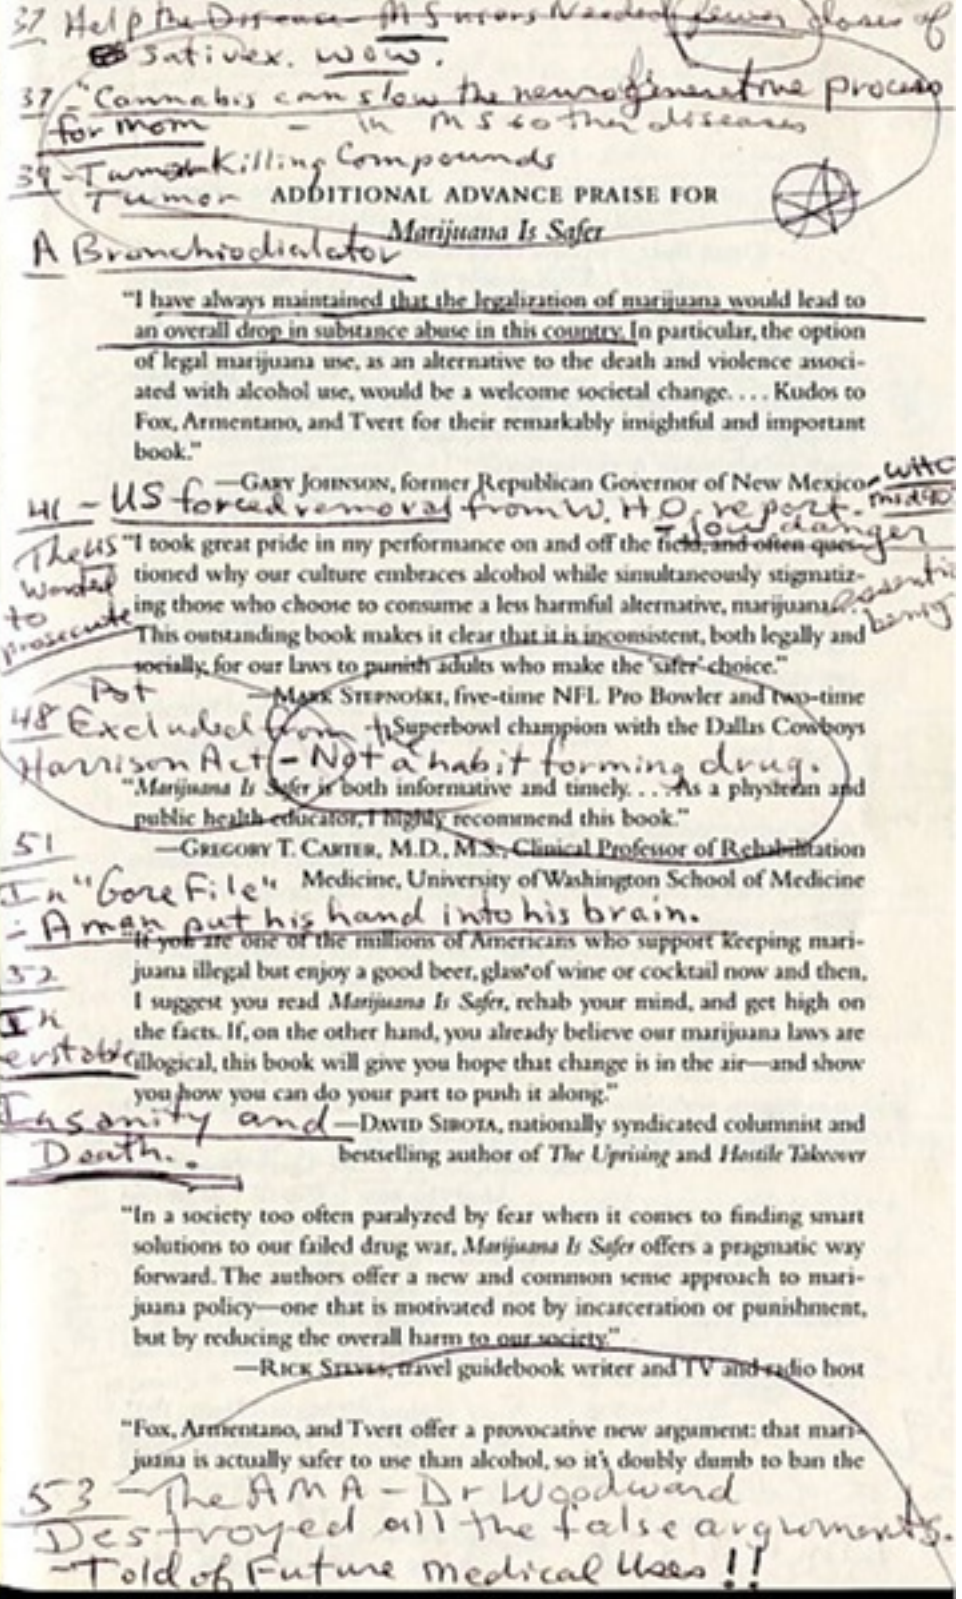 37 Help the Disease - MS users Needed fewer doses of
Sativex. wow.
37 - "Cannabis can slow the neurogenerative process
for mom - in MS & other diseases
39 - Tumor Killing Compounds
Tumor
ADDITIONAL ADVANCE PRAISE FOR
Marijuana Is Safer
A Bronchiodialator
"I have always maintained that the legalization of marijuana would lead to
an overall drop in substance abuse in this country. In particular, the option
of legal marijuana use, as an alternative to the death and violence associ-
ated with alcohol use, would be a welcome societal change. . . . Kudos to
Fox, Armentano, and Tvert for their remarkably insightful and important
book."
—GARY JOHNSON, former Republican Governor of New Mexico
WHO
mid 90
41 - US forced removal from W.H.O. report.
- low danger
essenti
benig
The US
wanted
to
prosecute
"I took great pride in my performance on and off the field, and often ques-
tioned why our culture embraces alcohol while simultaneously stigmatiz-
ing those who choose to consume a less harmful alternative, marijuana.
This outstanding book makes it clear that it is inconsistent, both legally and
socially, for our laws to punish adults who make the 'safer' choice."
—MARK STEPNOSKI, five-time NFL Pro Bowler and two-time
Superbowl champion with the Dallas Cowboys
Pot
48 Excluded from the
Harrison Act - Not a habit forming drug.
"Marijuana Is Safer is both informative and timely. . . . As a physician and
public health educator, I highly recommend this book."
—GREGORY T. CARTER, M.D., M.S., Clinical Professor of Rehabilitation
Medicine, University of Washington School of Medicine
51
In "Gore File"
- A man put his hand into his brain.
"If you are one of the millions of Americans who support keeping mari-
juana illegal but enjoy a good beer, glass of wine or cocktail now and then,
I suggest you read Marijuana Is Safer, rehab your mind, and get high on
the facts. If, on the other hand, you already believe our marijuana laws are
illogical, this book will give you hope that change is in the air—and show
you how you can do your part to push it along."
—DAVID SIROTA, nationally syndicated columnist and
bestselling author of The Uprising and Hostile Takeover
52
In
evitable
Insanity and
Death.
"In a society too often paralyzed by fear when it comes to finding smart
solutions to our failed drug war, Marijuana Is Safer offers a pragmatic way
forward. The authors offer a new and common sense approach to mari-
juana policy—one that is motivated not by incarceration or punishment,
but by reducing the overall harm to our society."
—RICK STEVES, travel guidebook writer and TV and radio host
"Fox, Armentano, and Tvert offer a provocative new argument: that mari-
juana is actually safer to use than alcohol, so it's doubly dumb to ban the
53 - The AMA - Dr Woodward
Destroyed all the false arguments.
- Told of Future medical Uses !!